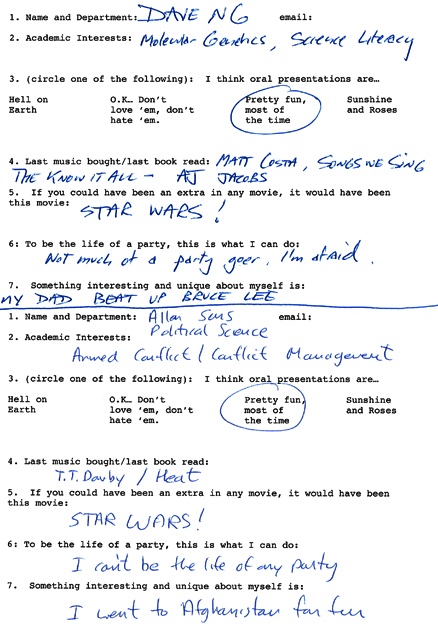 1. Name and Department: DAVE NG email:
2. Academic Interests: Molecular Genetics, Science Literacy
3. (circle one of the following): I think oral presentations are…
Hell on O.K… Don't Pretty fun, Sunshine
Earth love 'em, don't most of and Roses
hate 'em. the time
4. Last music bought/last book read: MATT COSTA, SONGS WE SING
THE KNOW IT ALL - AJ JACOBS
5. If you could have been an extra in any movie, it would have been
this movie: STAR WARS!
6: To be the life of a party, this is what I can do:
Not much of a party goer, I'm afraid.
7. Something interesting and unique about myself is:
MY DAD BEAT UP BRUCE LEE
1. Name and Department: Allan Sens email:
Political Science
2. Academic Interests:
Armed Conflict / Conflict Management
3. (circle one of the following): I think oral presentations are…
Hell on O.K… Don't Pretty fun, Sunshine
Earth love 'em, don't most of and Roses
hate 'em. the time
4. Last music bought/last book read:
T.T. Darby / Heat
5. If you could have been an extra in any movie, it would have been
this movie:
STAR WARS!
6: To be the life of a party, this is what I can do:
I can't be the life of any party
7. Something interesting and unique about myself is:
I went to Afghanistan for fun